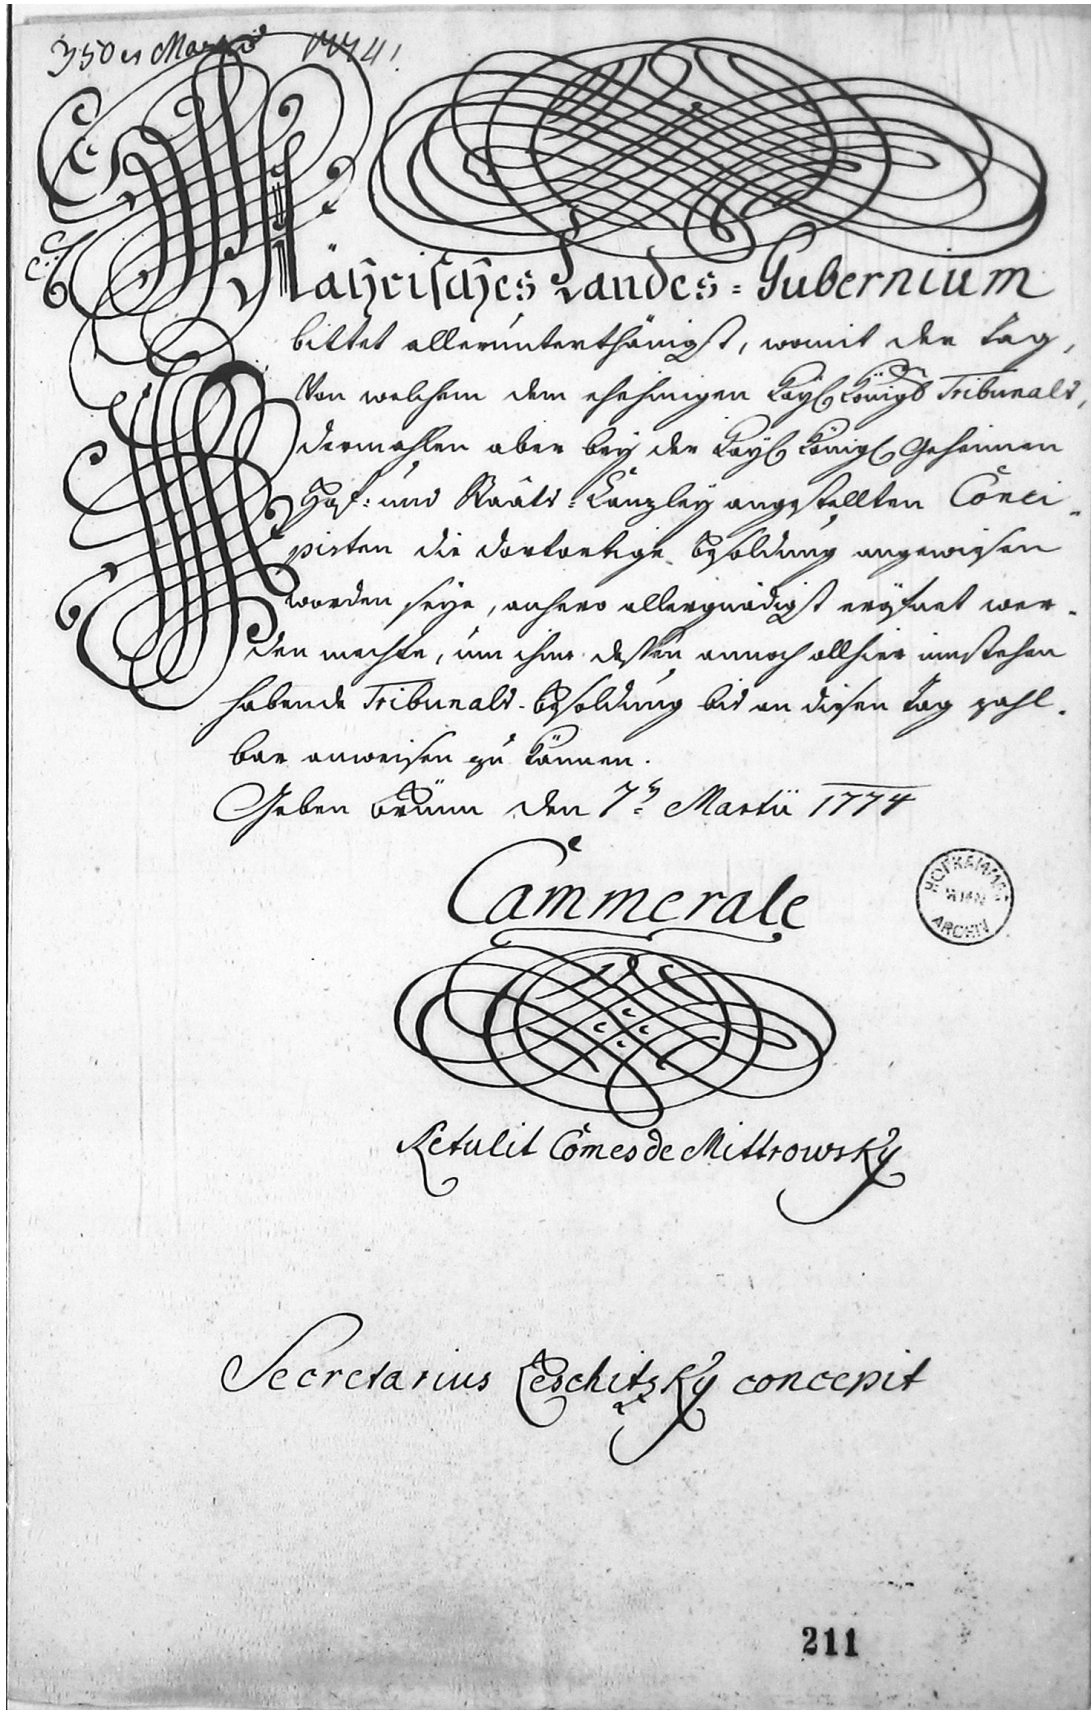 350 ex Martio 1774.
Mährisches Landes-Gubernium
bittet allerunterthänigst, womit der Tag,
Von welchem dem ehehinigen Kayl Königl Tribunals,
dermahlen aber bey der Kayl Königl Geheimen
Hof- und Staats-Kanzley angestellten Conci-
pisten die dortortige Besoldung angewiesen
worden seye, anhero allergnädigst eröfnet wer-
den mechte, um ihme dessen annoch allhier ausstehen
habende Tribunals-Besoldung bis an diesen Tag zahl-
bar anweisen zu können.
Geben Brünn den 7n Martii 1774
Cammerale
HOFKAMMER
WIEN
ARCHIV
Retulit Comes de Mittrowsky
Secretarius concepit
211